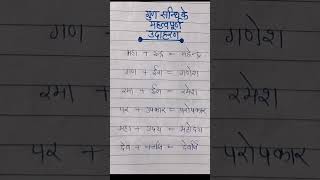 गुण सन्धि के
महत्वपूर्ण
उदाहरण
महा + इन्द्र = महेन्द्र
गण + ईश = गणेश
रमा + ईश = रमेश
पर + उपकार = परोपकार
महा + उदय = महोदय
देव + = देवर्षि
गण +
गणेश
रमा +
रमेश
पर +
परोपकार